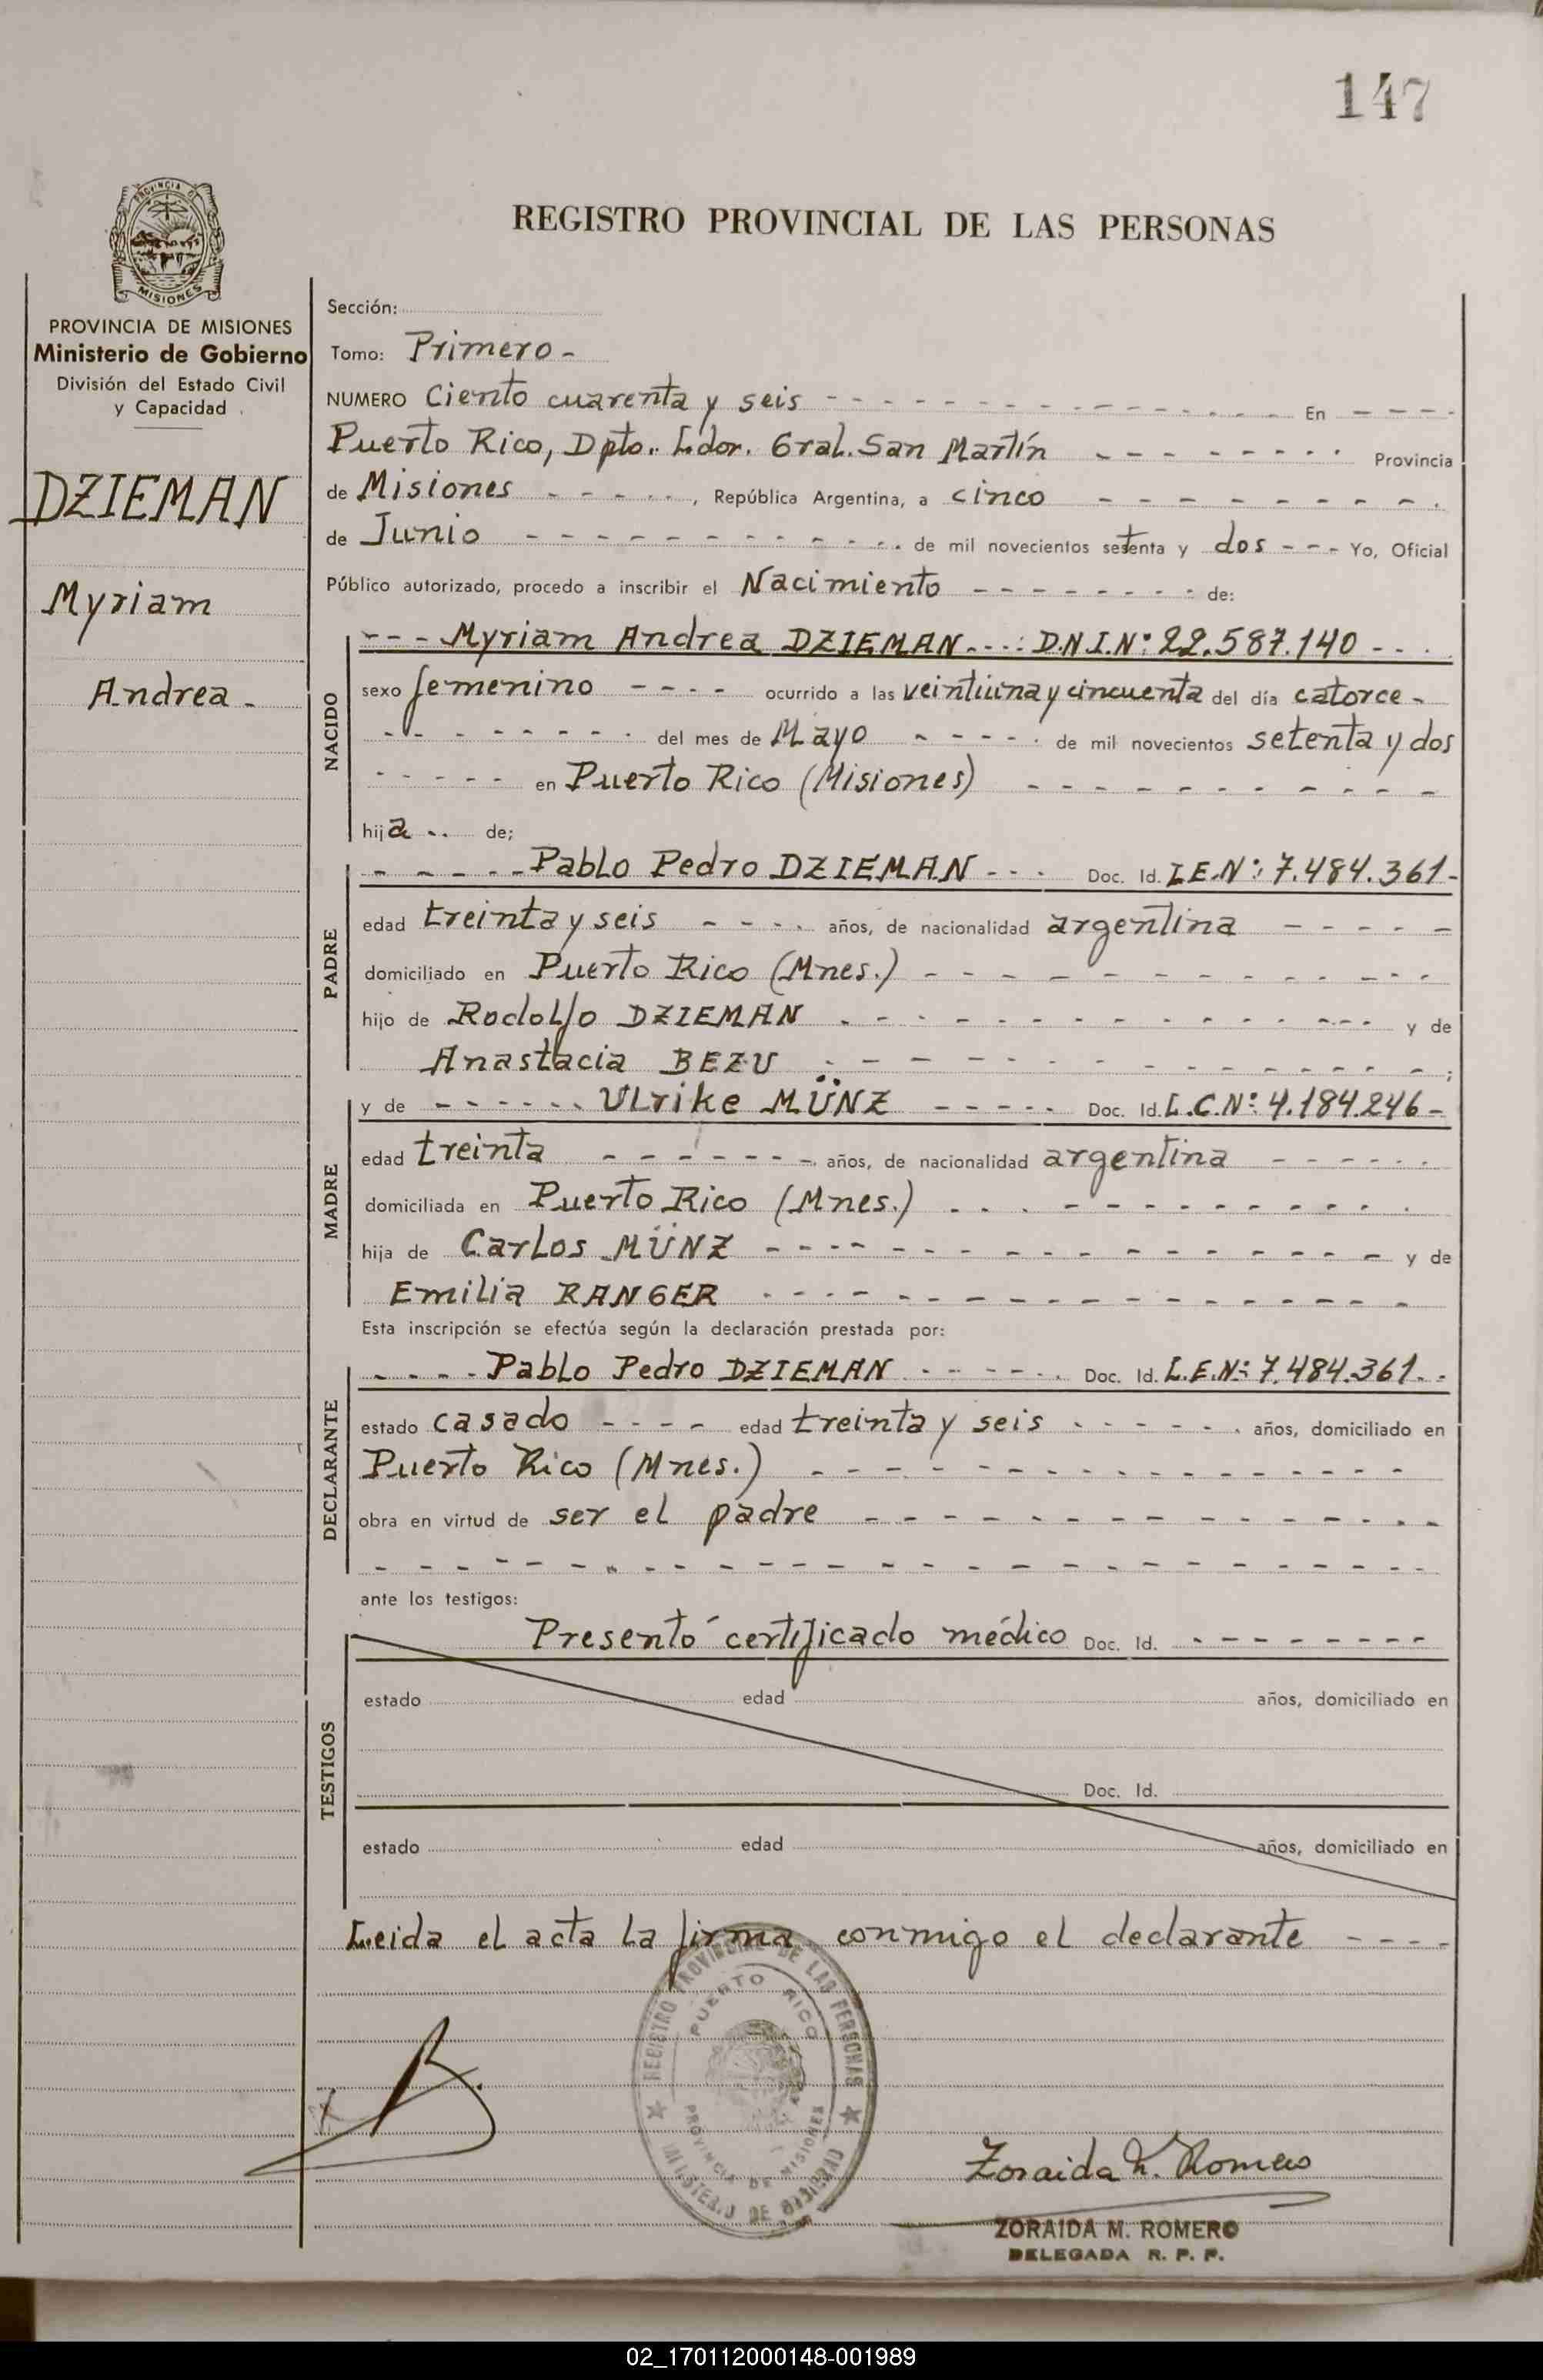 147
REGISTRO PROVINCIAL DE LAS PERSONAS
PROVINCIA DE MISIONES
PROVINCIA DE MISIONES
Ministerio de Gobierno
División del Estado Civil
y Capacidad
DZIEMAN
Myriam
Andrea -
Sección:
Tomo: Primero -
NUMERO Ciento cuarenta y seis - - - En - - - -
Puerto Rico, Dpto. Ldor. Gral. San Martín - - - Provincia
de Misiones - - - , República Argentina, a cinco - - -
de Junio - - - de mil novecientos setenta y dos - - - Yo, Oficial
Público autorizado, procedo a inscribir el Nacimiento - - - de:
NACIDO
- - - Myriam Andrea DZIEMAN - - - D.N.I.Nº 22.587.140 - - -
sexo femenino - - - - ocurrido a las veintiúna y cincuenta del día catorce -
- - - del mes de Mayo - - - de mil novecientos setenta y dos
- - - en Puerto Rico (Misiones) - - -
hija - - de;
PADRE
- - - Pablo Pedro DZIEMAN - - - Doc. Id. L.E.Nº: 7.484.361 -
edad treinta y seis - - - años, de nacionalidad argentina - - -
domiciliado en Puerto Rico (Mnes.) - - -
hijo de Rodolfo DZIEMAN - - - y de
Anastacia BEZU - - - ;
MADRE
y de - - - Ulrike MÜNZ - - - Doc. Id. L.C.Nº: 4.184.246 -
edad treinta - - - años, de nacionalidad argentina - - -
domiciliada en Puerto Rico (Mnes.) - - -
hija de Carlos MÜNZ - - - y de
Emilia RANGER - - -
Esta inscripción se efectúa según la declaración prestada por:
DECLARANTE
- - - Pablo Pedro DZIEMAN - - - Doc. Id. L.E.Nº: 7.484.361 - -
estado casado - - - - edad treinta y seis - - - años, domiciliado en
Puerto Rico (Mnes.) - - -
obra en virtud de ser el padre - - -
- - -
ante los testigos:
TESTIGOS
Presentó certificado médico Doc. Id. - - -
estado edad años, domiciliado en
Doc. Id.
estado edad años, domiciliado en
Leida el acta la firma conmigo el declarante - - - -
REGISTRO PROVINCIAL DE LAS PERSONAS
PUERTO RICO
PROVINCIA DE MISIONES
MINISTERIO DE GOBIERNO
Zoraida M. Romero
ZORAIDA M. ROMERO
DELEGADA R. P. P.
02_170112000148-001989